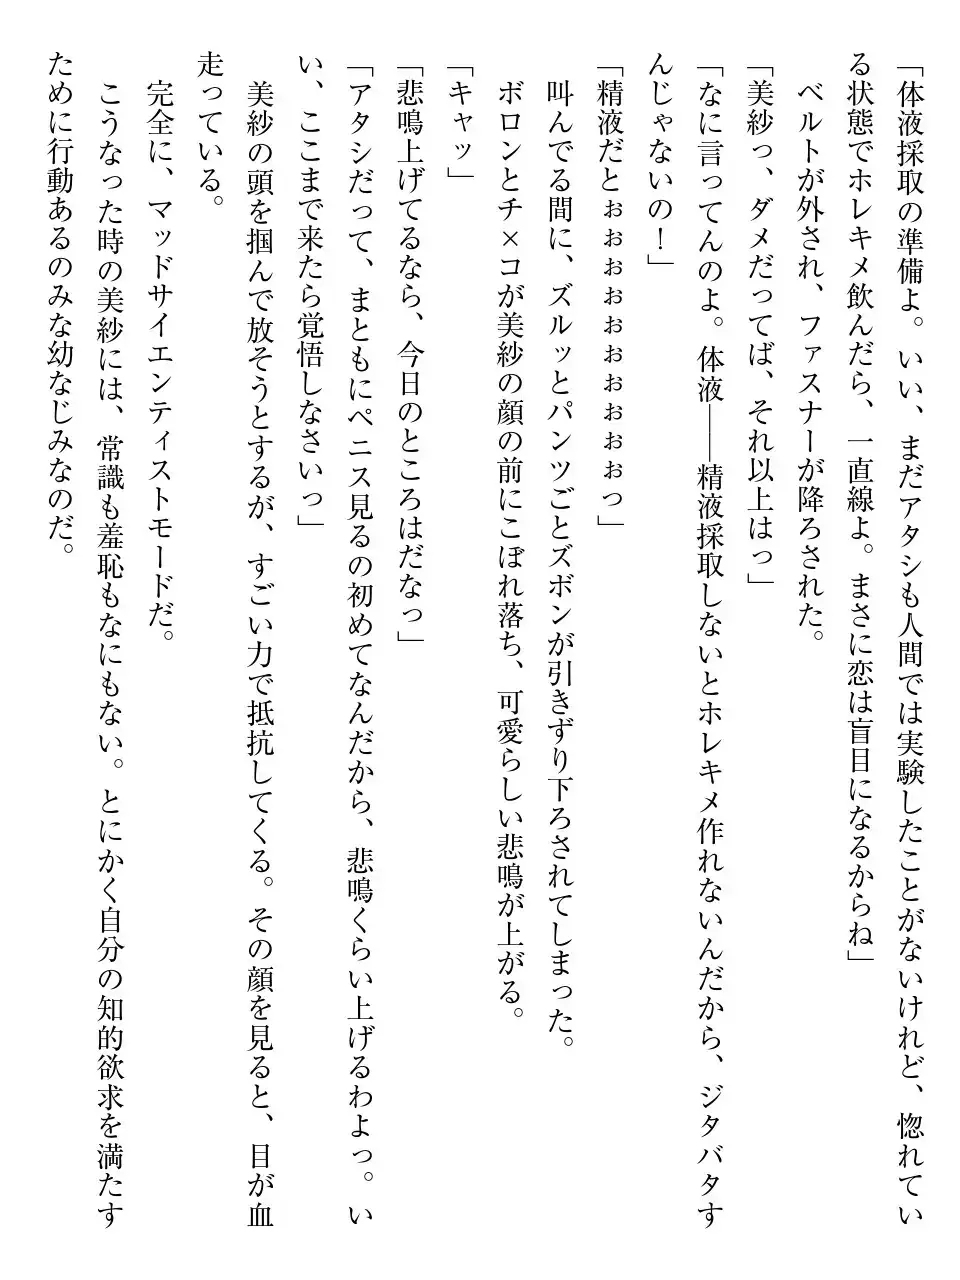 「体液採取の準備よ。いい、まだアタシも人間では実験したことがないけれど、惚れてい
る状態でホレキメ飲んだら、一直線よ。まさに恋は盲目になるからね」
ベルトが外され、ファスナーが降ろされた。
「美紗っ、ダメだってば、それ以上はっ」
「なに言ってんのよ。体液――精液採取しないとホレキメ作れないんだから、ジタバタす
んじゃないの！」
「精液だとぉぉぉぉぉぉぉぉぉぉっ」
叫んでる間に、ズルッとパンツごとズボンが引きずり下ろされてしまった。
ボロンとチ×コが美紗の顔の前にこぼれ落ち、可愛らしい悲鳴が上がる。
「キャッ」
「悲鳴上げてるなら、今日のところはだなっ」
「アタシだって、まともにペニス見るの初めてなんだから、悲鳴くらい上げるわよっ。い
い、ここまで来たら覚悟しなさいっ」
美紗の頭を掴んで放そうとするが、すごい力で抵抗してくる。その顔を見ると、目が血
走っている。
完全に、マッドサイエンティストモードだ。
こうなった時の美紗には、常識も羞恥もなにもない。とにかく自分の知的欲求を満たす
ために行動あるのみな幼なじみなのだ。